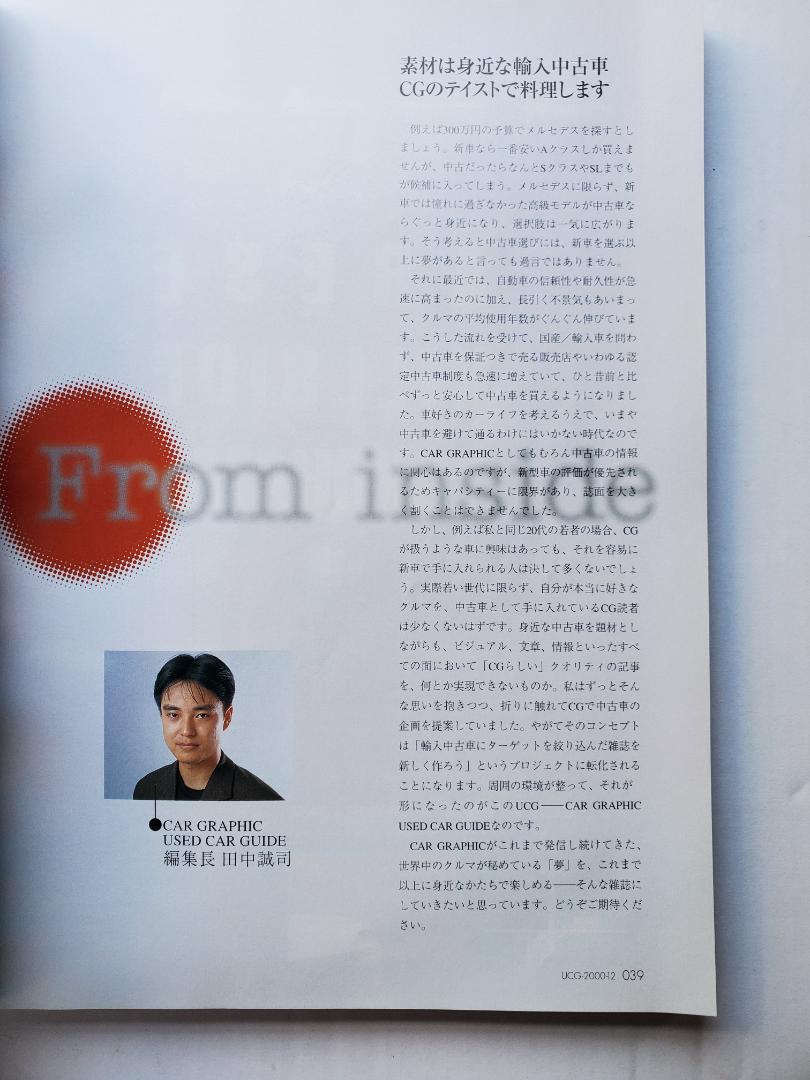 素材は身近な輸入中古車
CGのテイストで料理します
例えば300万円の予算でメルセデスを探すとし
ましょう。新車なら一番安いAクラスしか買えま
せんが、中古だったらなんとSクラスやSLまでも
が候補に入ってしまう。メルセデスに限らず、新
車では憧れに過ぎなかった高級モデルが中古車な
らぐっと身近になり、選択肢は一気に広がりま
す。そう考えると中古車選びには、新車を選ぶ以
上に夢があると言っても過言ではありません。
それに最近では、自動車の信頼性や耐久性が急
速に高まったのに加え、長引く不景気もあいまっ
て、クルマの平均使用年数がぐんぐん伸びていま
す。こうした流れを受けて、国産／輸入車を問わ
ず、中古車を保証つきで売る販売店やいわゆる認
定中古車制度も急速に増えていて、ひと昔前と比
べずっと安心して中古車を買えるようになりまし
た。車好きのカーライフを考えるうえで、いまや
中古車を避けて通るわけにはいかない時代なので
す。CAR GRAPHICとしてもむろん中古車の情報
に関心はあるのですが、新型車の評価が優先され
るためキャパシティーに限界があり、誌面を大き
く割くことはできませんでした。
しかし、例えば私と同じ20代の若者の場合、CG
が扱うような車に興味はあっても、それを容易に
新車で手に入れられる人は決して多くないでしょ
う。実際若い世代に限らず、自分が本当に好きな
クルマを、中古車として手に入れているCG読者
は少なくないはずです。身近な中古車を題材とし
ながらも、ビジュアル、文章、情報といったすべ
ての面において「CGらしい」クオリティの記事
を、何とか実現できないものか。私はずっとそん
な思いを抱きつつ、折りに触れてCGで中古車の
企画を提案していました。やがてそのコンセプト
は「輸入中古車にターゲットを絞り込んだ雑誌を
新しく作ろう」というプロジェクトに転化される
ことになります。周囲の環境が整って、それが
形になったのがこのUCG――CAR GRAPHIC
USED CAR GUIDEなのです。
CAR GRAPHICがこれまで発信し続けてきた、
世界中のクルマが秘めている「夢」を、これまで
以上に身近なかたちで楽しめる――そんな雑誌に
していきたいと思っています。どうぞご期待くだ
さい。
From inside
CAR GRAPHIC
USED CAR GUIDE
編集長 田中誠司
UCG-2000-12 039